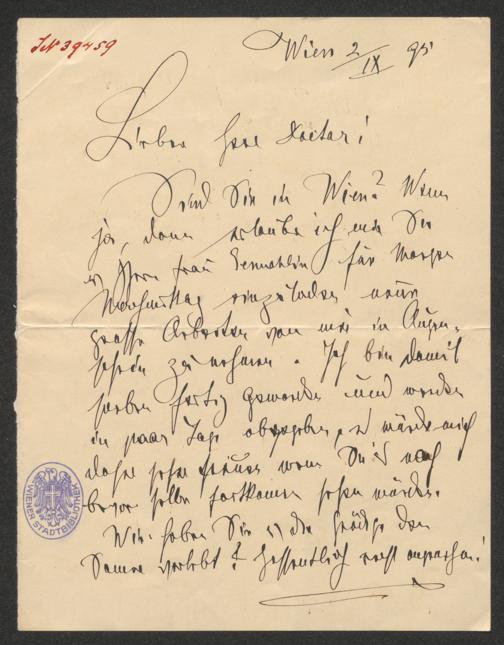 IN 39459
Wien 2/IX 95
Lieber Herr Doctor!
Sind Sie in Wien? Wenn
ja, dann erlaube ich mir Sie
u Ihre Frau Gemahlin für Morgen
Nachmittag einzuladen neue
große Arbeiten von mir in Augen-
schein zu nehmen. Ich bin damit
soeben fertig geworden und werden
in paar Tage abgegeben, es würde mich
daher sehr freuen wenn Sie's noch
bevor selbe fortkomen sehen würden.
Wie haben Sie u die Gnädige den
Somer verlebt? Hoffentlich recht angenehm!
WIENER STADTBIBLIOTHEK